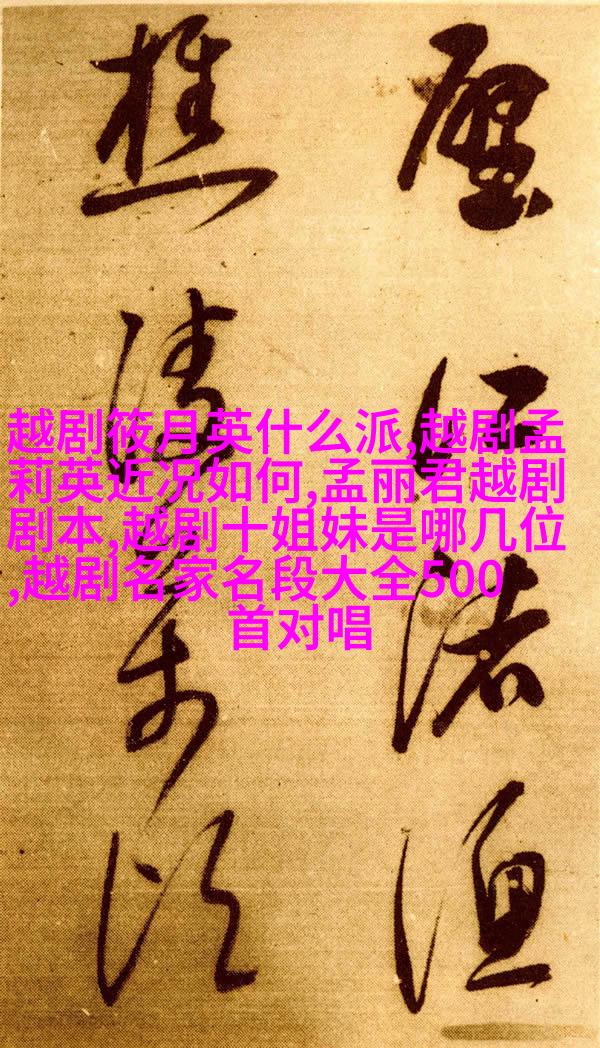 江渚漁
樵
越剧筱月英什么派,越剧孟
莉英近况如何,孟丽君越剧
剧本,越剧十姐妹是哪几位
,越剧名家名段大全500
首对唱